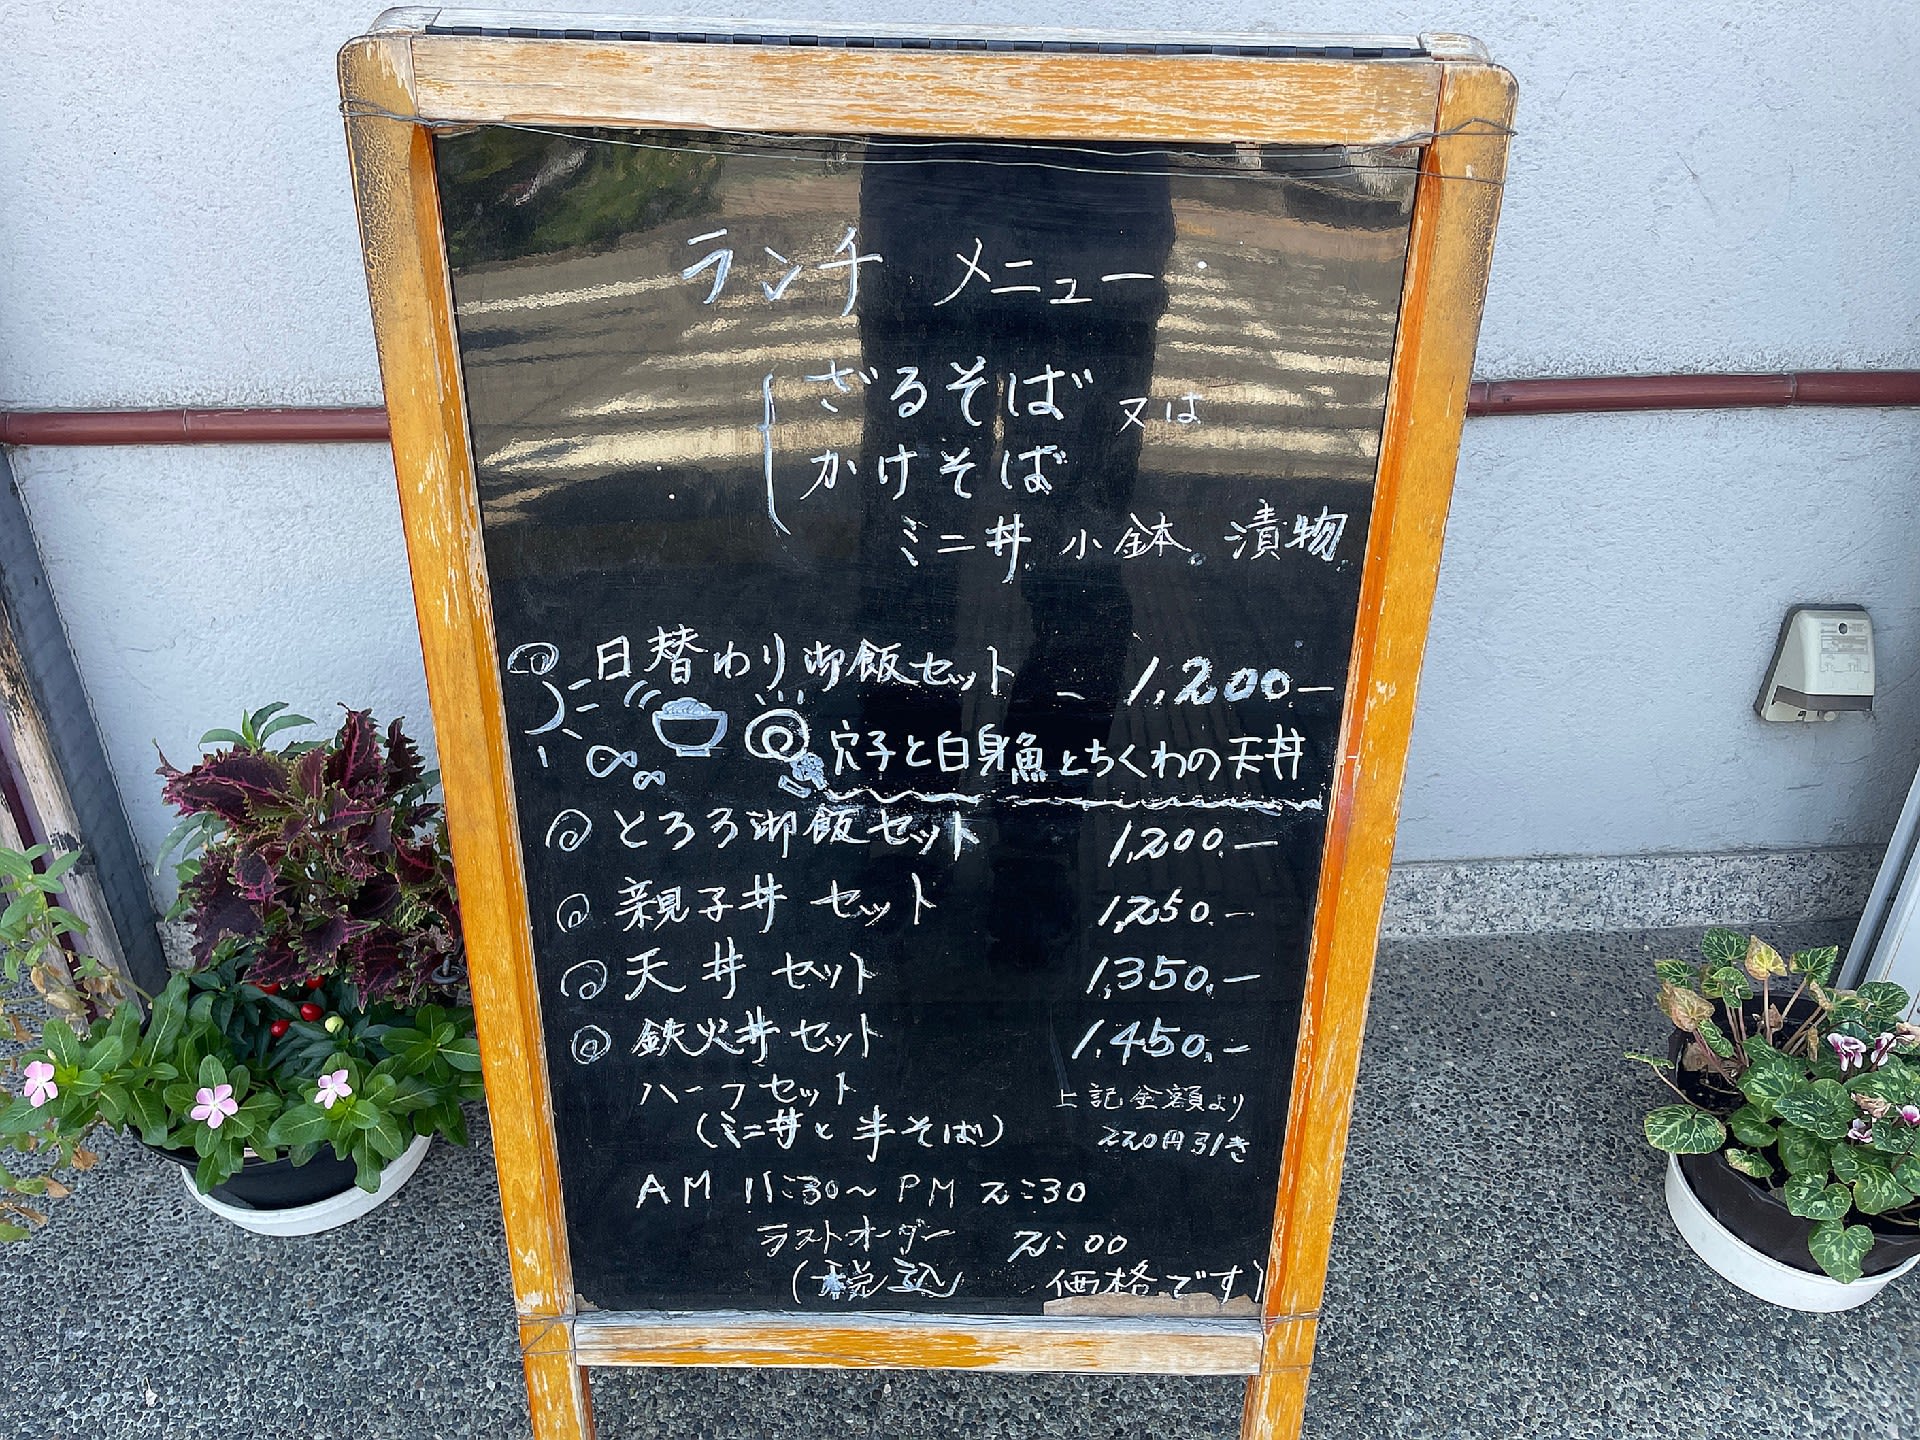 ランチ メニュー
ざるそば 又は
かけそば
ミニ丼 小鉢 漬物
日替わり御飯セット - 1,200.-
穴子と白身魚とちくわの天丼
とろろ御飯セット 1,200.-
親子丼 セット 1,250.-
天丼 セット 1,350.-
鉄火丼 セット 1,450.-
ハーフセット 上記金額より
(ミニ丼と 半そば) 220円引き
AM 11:30~PM 2:30
ラストオーダー 2:00
(税込 価格です)